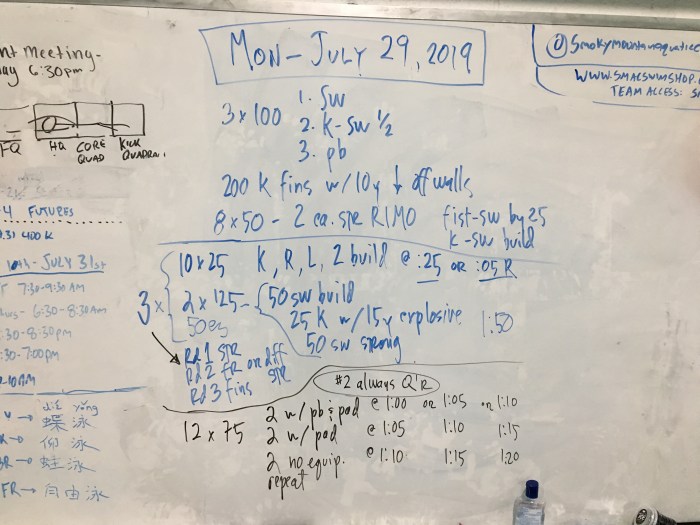 MON - JULY 29, 2019
3 x 100
1. SW
2. K-SW 1/2
3. pb
200 K fins w/10y ↓ off walls
8 x 50 - 2 ea. STR RIMO fist-sw by 25
K-sw build
3x
10 x 25 K, R, L, 2 build @ :25 OR :05 R
2 x 125 - 50 sw build
25 K w/15y explosive 1:50
50 sw strong
50 es
Rd 1 STR
Rd 2 FR or diff STR
Rd 3 fins
#2 always Q'R
12 x 75
2 w/pb & pad @ 1:00 or 1:05 or 1:10
2 w/pad @ 1:05 1:10 1:15
2 no equip. @ 1:10 1:15 1:20
repeat
Meeting-
6:30pm
HQ CORE QUAD KICK
FUTURES
400 K
JULY 31st
7:30-9:30 AM
6:30-8:30AM
:30-8:30pm
:30-7:00pm
dié yǒng
→ 蝶泳
→ 仰泳
BR → 蛙泳
FR → 自由泳
@Smokymountainaquatic
WWW.SMACSWIMSHOP.
TEAM ACCESS: